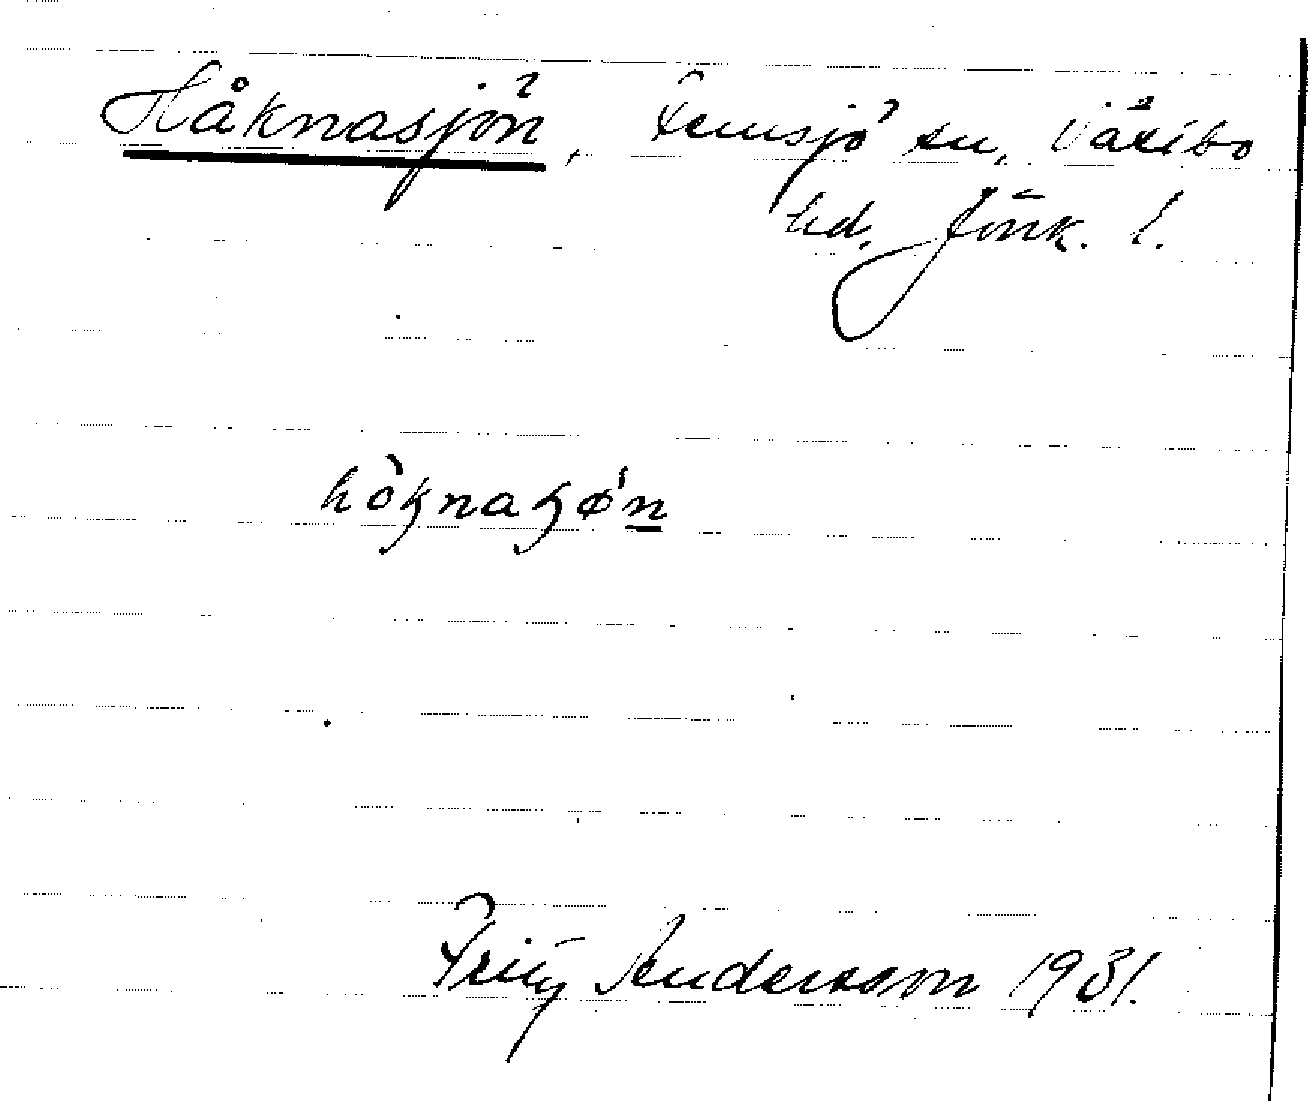 Håknasjön, Femsjö sn, Västbo
hd, Jönk. l.
Fritz Andersson 1931.